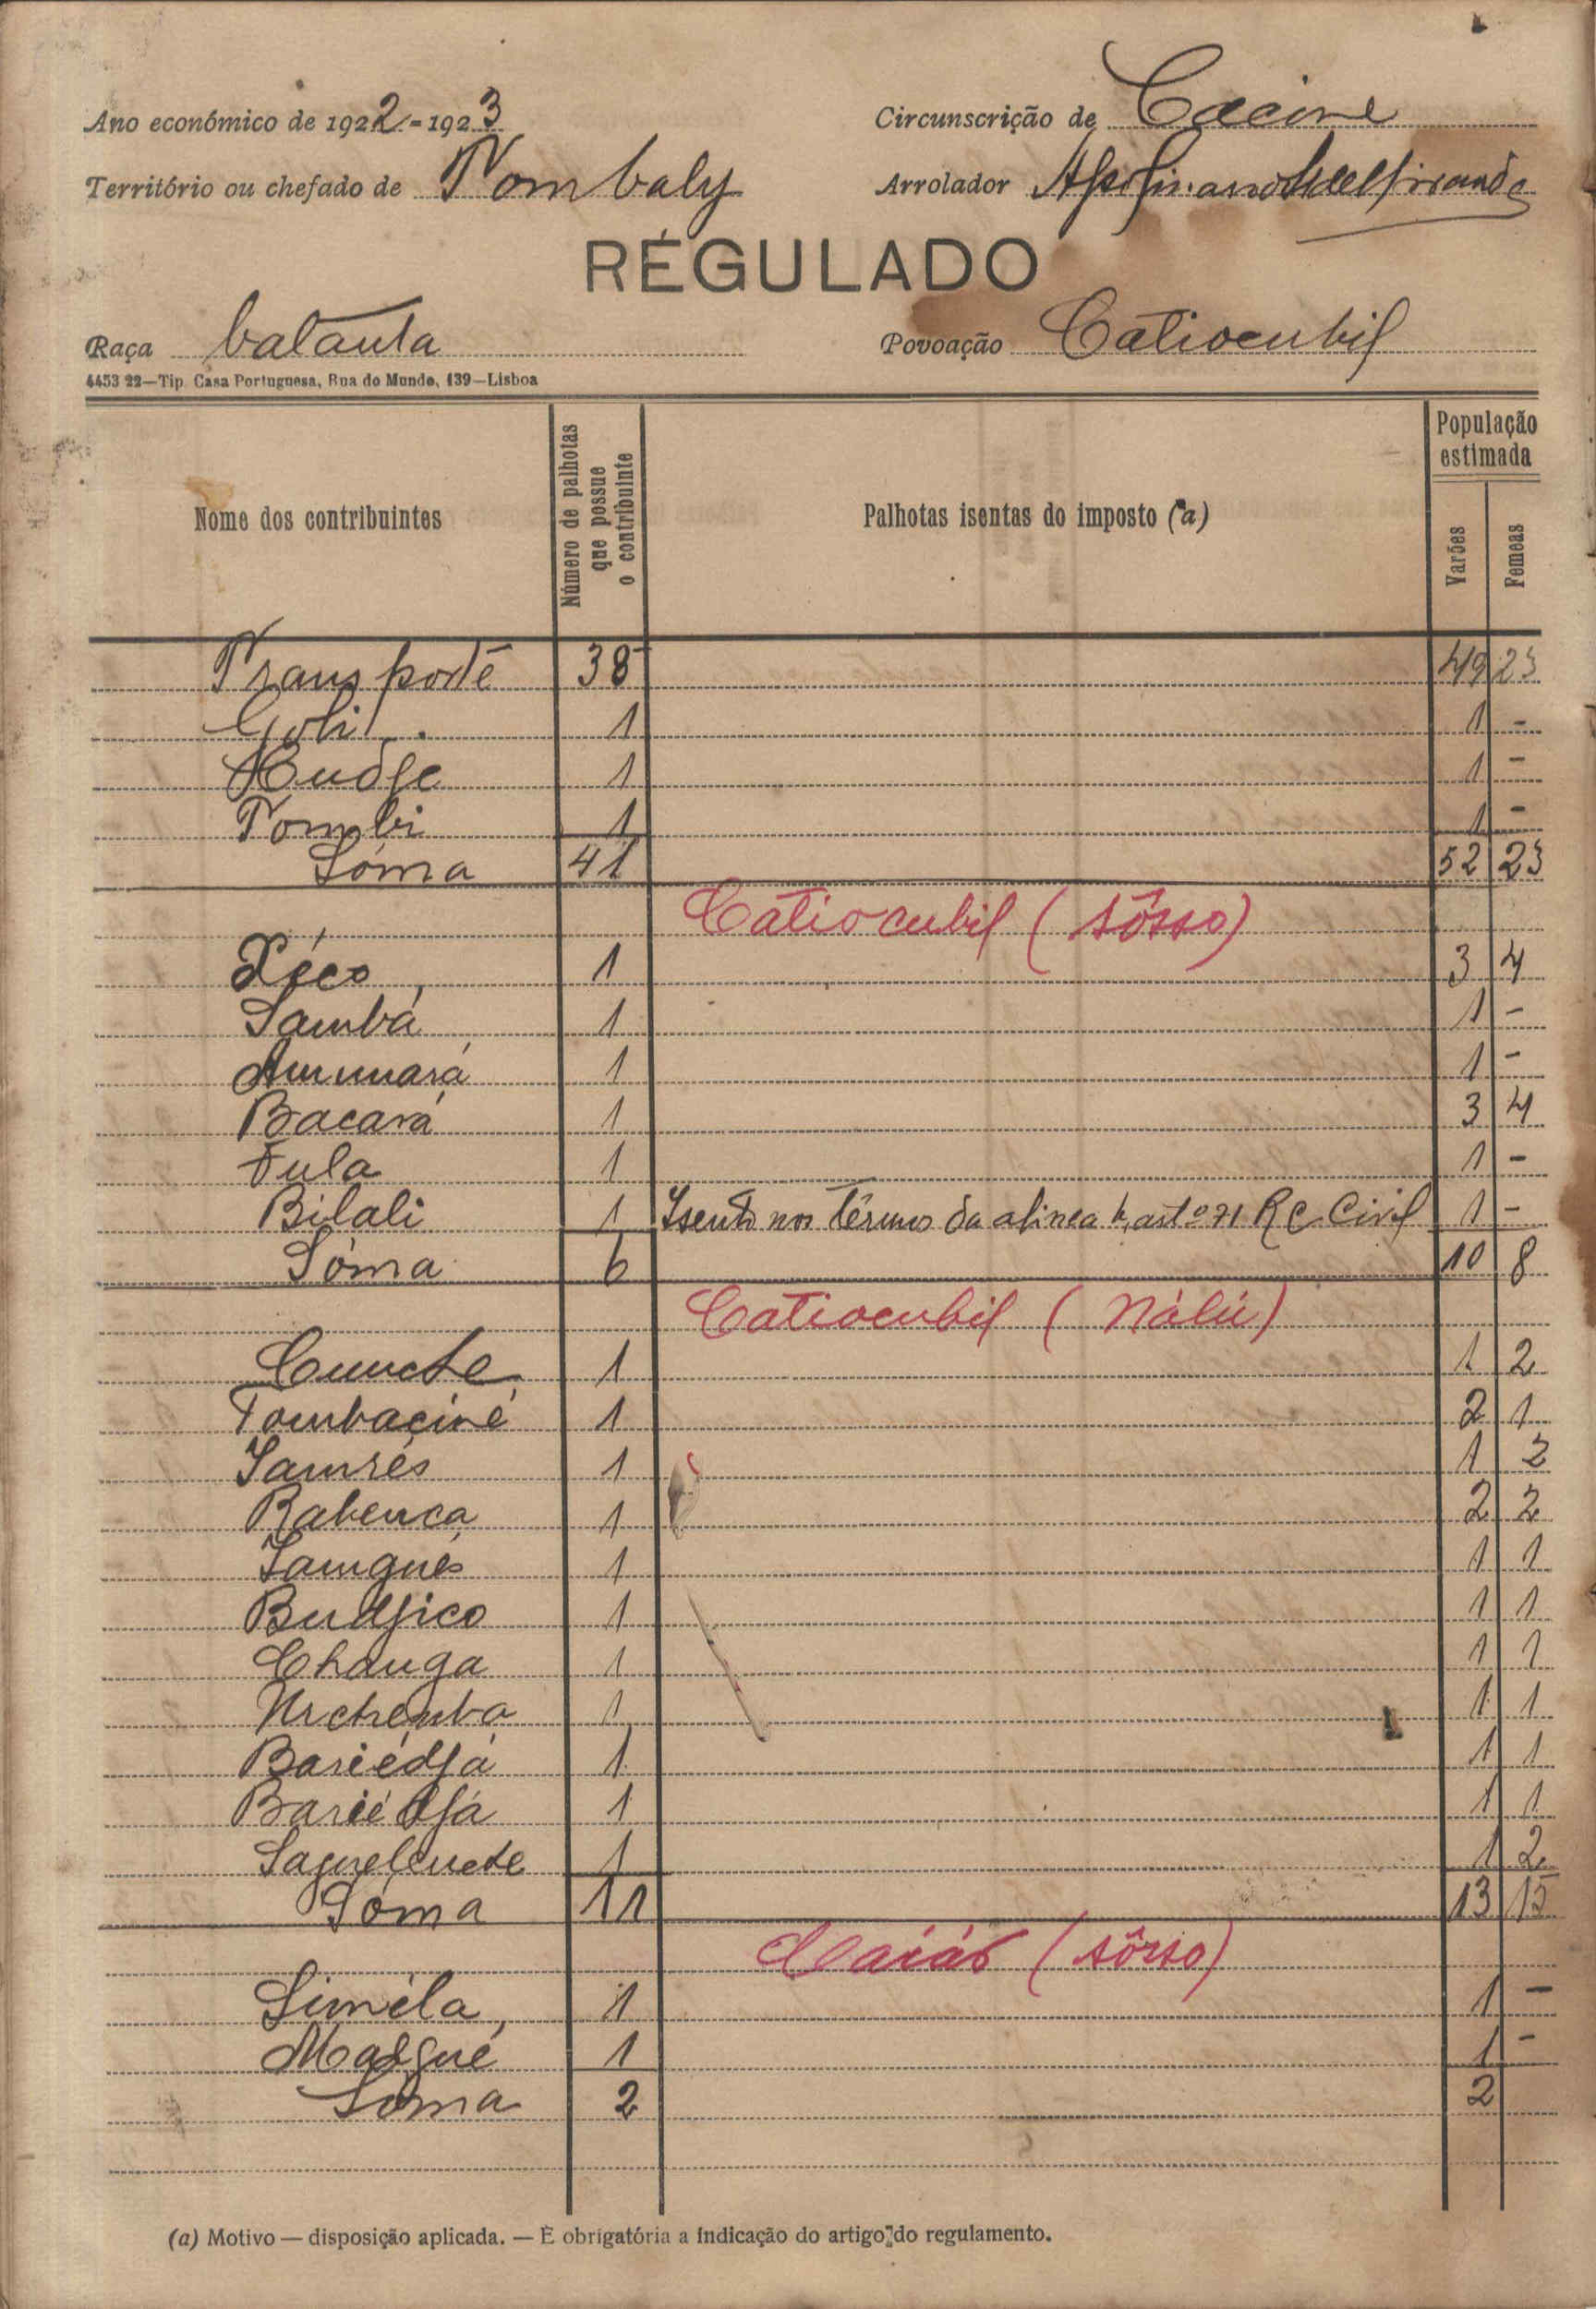 Ano económico de 1922-1923
Circunscrição de Cacine
Território ou chefado de Tombaly
Arrolador
RÉGULADO
Raça balanta
Povoação Catiocubil
4453 22—Tip. Casa Portuguesa, Rua do Mundo, 139—Lisboa
Nome dos contribuintes
Número de palhotas que possue o contribuinte
Palhotas isentas do imposto (a)
População estimada
Varões
Femeas
Transporte 38 49 23
1 1 -
1 1 -
Tombi 1 1 -
Sôma 41 52 23
Catiocubil (sôsso)
1 3 4
Sambá 1 1 -
1 1 -
Bacará 1 3 4
Fula 1 1 -
Bilali 1 Isento nos têrmos da alinea art.º 71 R C Civil 1 -
Sôma 6 10 8
Catiocubil (Nálú)
Cunete 1 1 2
Tombaciné 1 2 1
1 1 2
Rabenca 1 2 2
1 1 1
Budjico 1 1 1
Changa 1 1 1
1 1 1
Bariédjá 1 1 1
Bariédjá 1 1 1
1 1 2
Sôma 11 13 15
Caiás (sôsso)
Siméla 1 1 -
1 1 -
Sôma 2 2
(a) Motivo — disposição aplicada. — É obrigatória a indicação do artigo do regulamento.